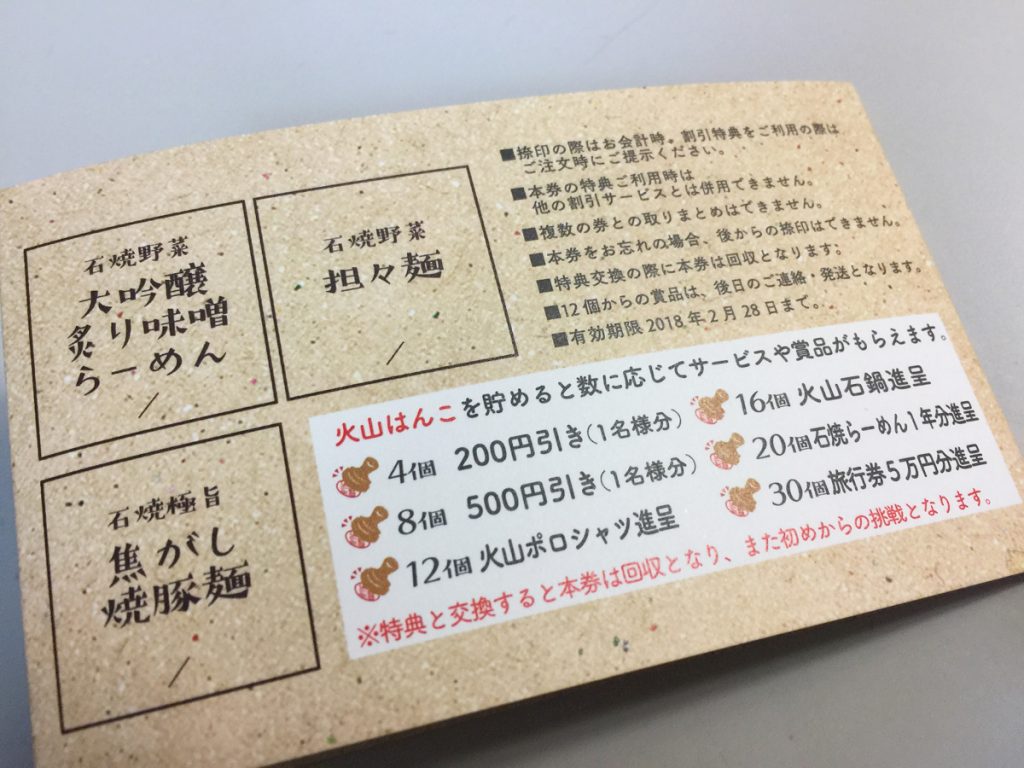 石焼野菜
大吟醸
炙り味噌
らーめん
/
石焼野菜
担々麺
/
石焼極旨
焦がし
焼豚麺
/
■捺印の際はお会計時。割引特典をご利用の際は
ご注文時にご提示ください。
■本券の特典ご利用時は
他の割引サービスとは併用できません。
■複数の券との取りまとめはできません。
■本券をお忘れの場合、後からの捺印はできません。
■特典交換の際に本券は回収となります。
■12個からの賞品は、後日のご連絡・発送となります。
■有効期限2018年2月28日まで。
火山はんこを貯めると数に応じてサービスや賞品がもらえます。
4個 200円引き(1名様分)
8個 500円引き(1名様分)
12個 火山ポロシャツ進呈
16個 火山石鍋進呈
20個 石焼らーめん1年分進呈
30個 旅行券5万円分進呈
※特典と交換すると本券は回収となり、また初めからの挑戦となります。